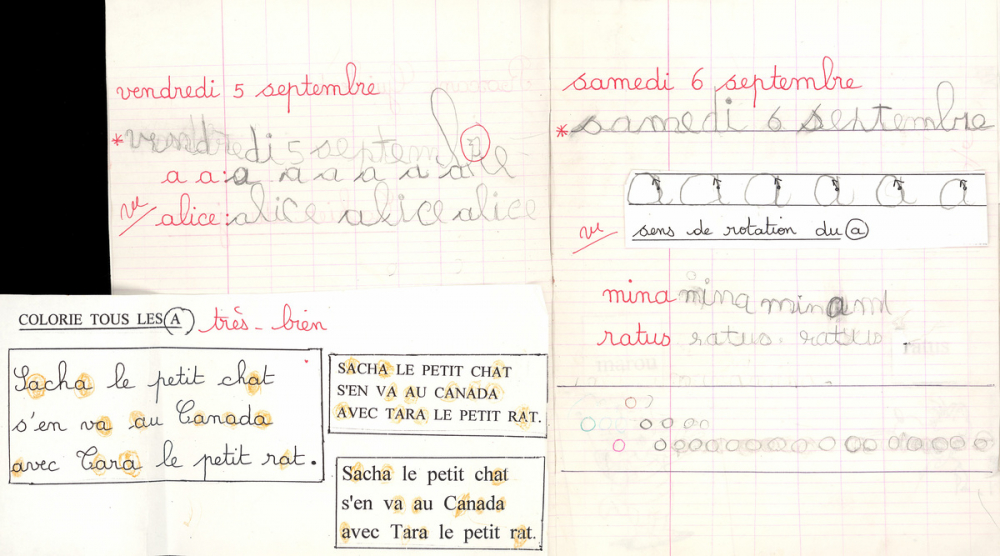 vendredi 5 septembre
* vendredi 5 septembre
a a: a a a a a a
vu
alice: alice alice alice
COLORIE TOUS LES A
très-bien
Sacha le petit chat
s'en va au Canada
avec Tara le petit rat.
SACHA LE PETIT CHAT
S'EN VA AU CANADA
AVEC TARA LE PETIT RAT.
Sacha le petit chat
s'en va au Canada
avec Tara le petit rat.
samedi 6 septembre
* samedi 6 septembre
a a a a a a
vu
sens de rotation du a
mina mina mina
ratus ratus. ratus